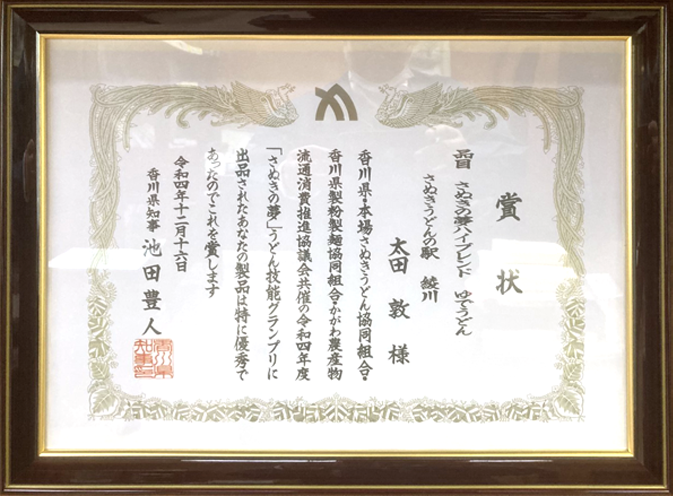 賞状
品目 さぬきの夢ハイブレンド ゆでうどん
さぬきうどんの駅 綾川
太田 敦 様
香川県・本場さぬきうどん協同組合・
香川県製粉製麺協同組合・かがわ農産物
流通消費推進協議会共催の令和四年度
「さぬきの夢」うどん技能グランプリに
出品されたあなたの製品は特に優秀で
あったのでこれを賞します
令和四年十二月十六日
香川県知事 池田豊人
香川県
知事印